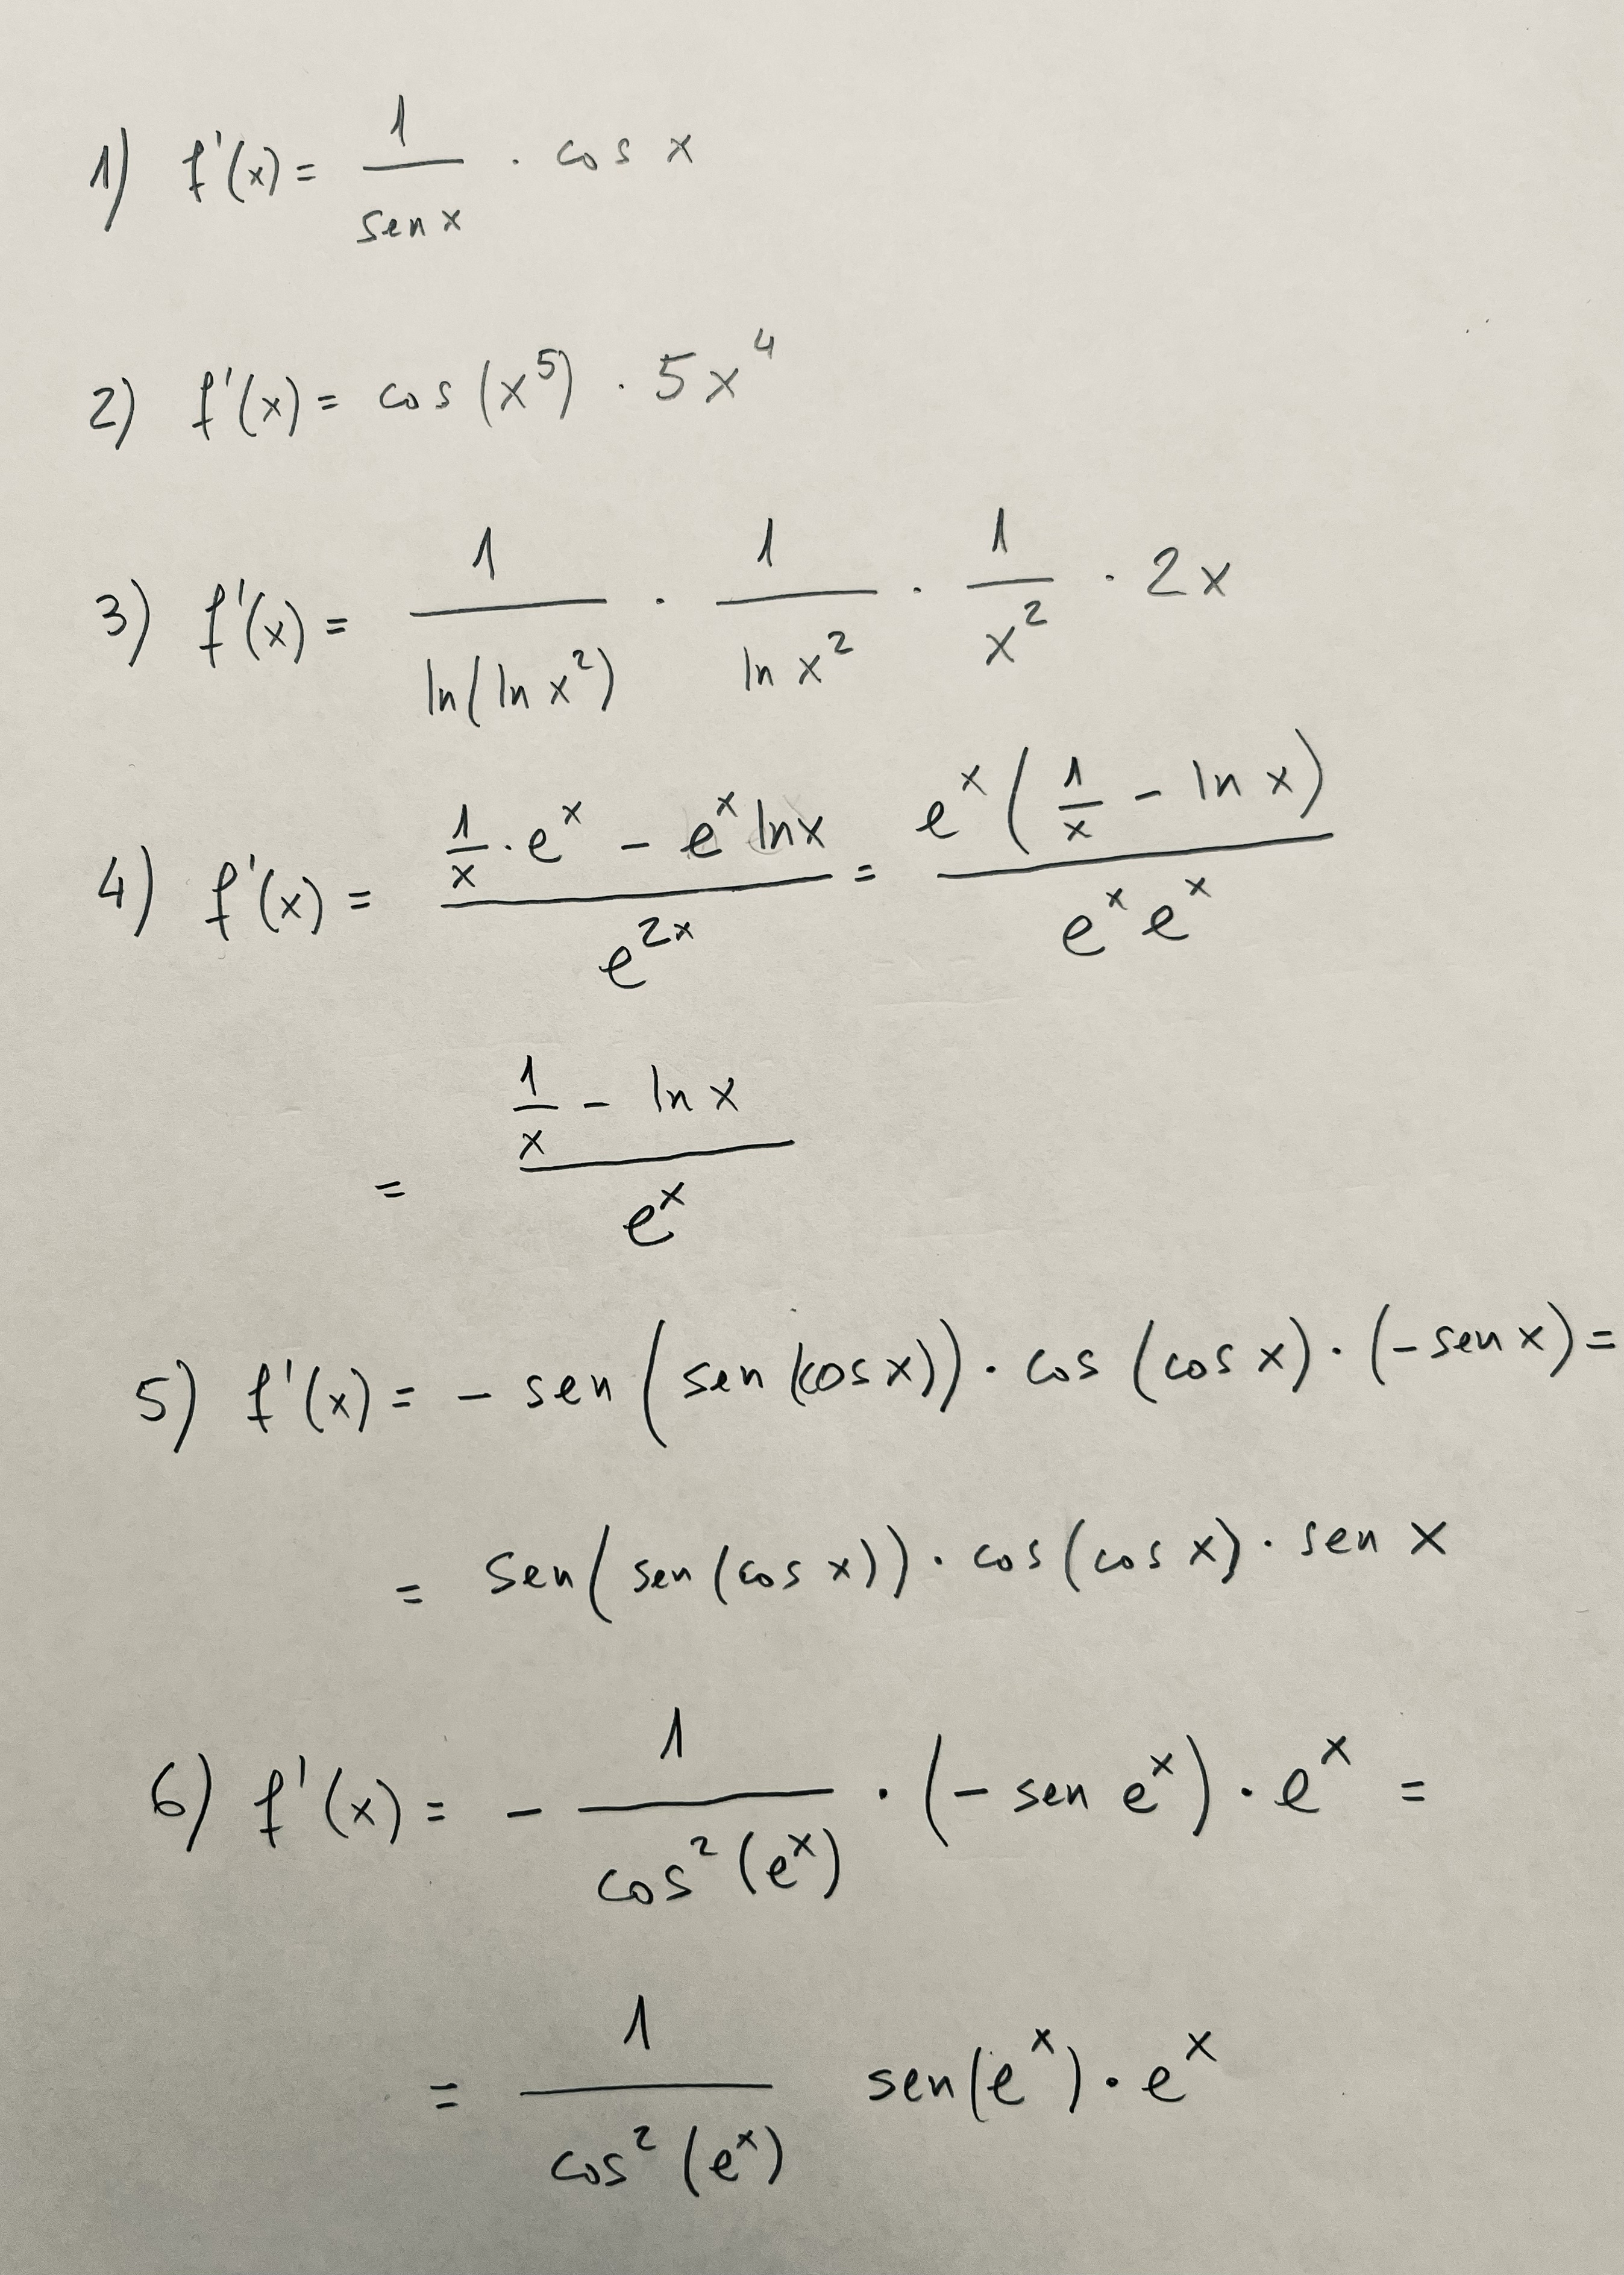 1) f'(x) = 1/sen x · cos x
2) f'(x) = cos (x⁵) · 5x⁴
3) f'(x) = 1/ln(ln x²) · 1/ln x² · 1/x² · 2x
4) f'(x) = (1/x · eˣ - eˣ ln x)/e²ˣ = eˣ(1/x - ln x)/eˣ eˣ
= (1/x - ln x)/eˣ
5) f'(x) = - sen (sen (cos x)) · cos (cos x) · (- sen x) =
= sen (sen (cos x)) · cos (cos x) · sen x
6) f'(x) = - 1/cos² (eˣ) · (- sen eˣ) · eˣ =
= 1/cos² (eˣ) sen(eˣ) · eˣ